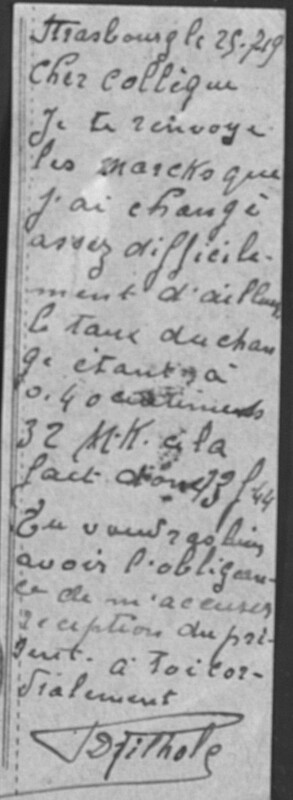 Strasbourg le 25.7.19
Cher collègue
Je te renvoye
les marcks que
j'ai changé
assez difficile-
ment d'ailleurs
le taux du chan
ge étant à
0.40 centimes
32 M.K. cela
fait donc 13 f 44
Tu voudras bien
avoir l'obligean-
ce de m'accuser
réception du pré-
sent. à toi cor-
dialement